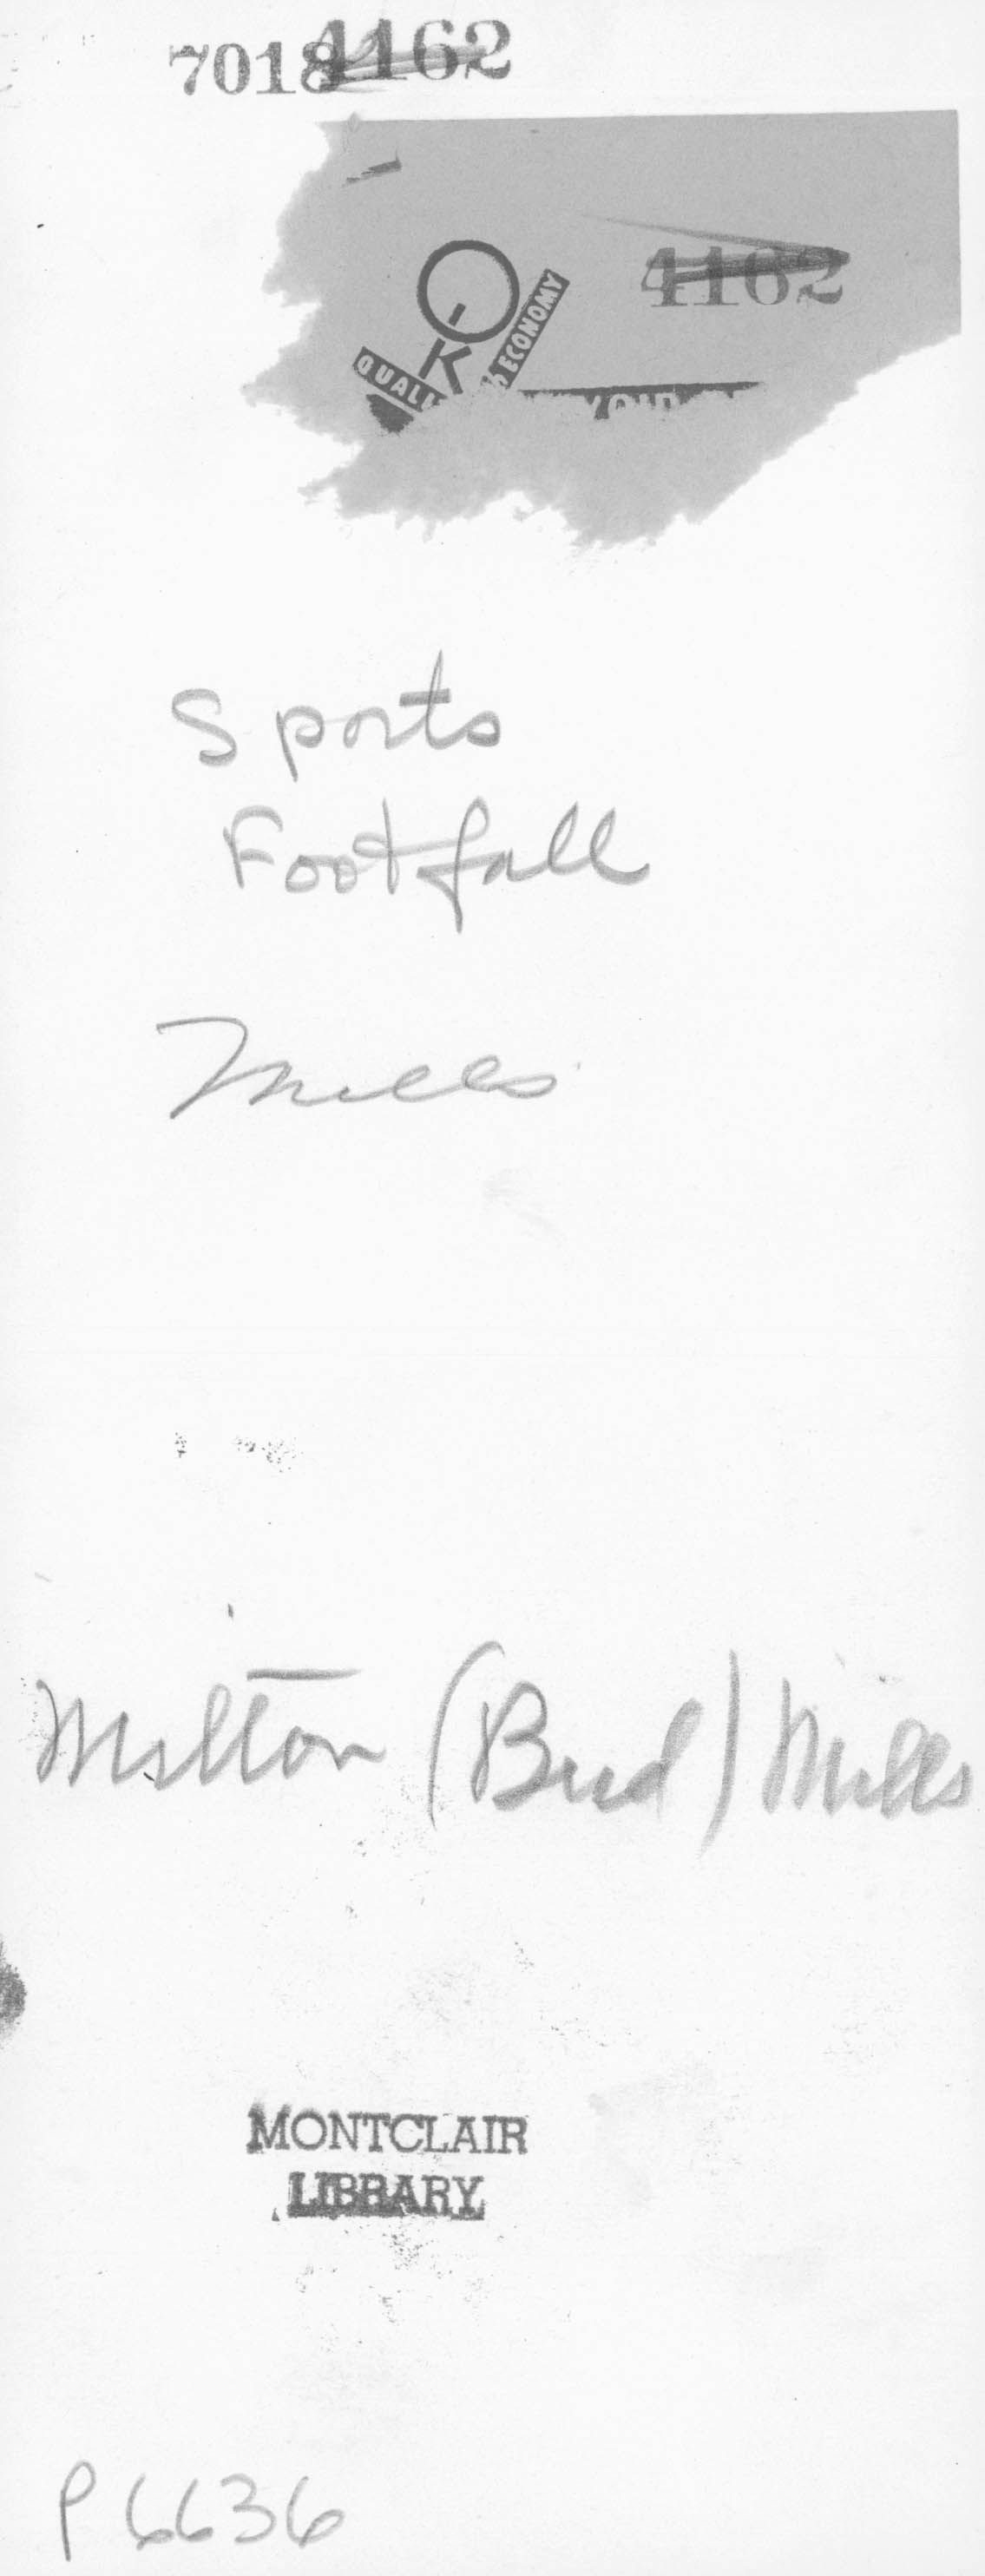 7018 4162
4162
OK
QUALI
ECONOMY
Sports
Football
Mills
Milton (Bud) Mills
MONTCLAIR
LIBRARY
P6636